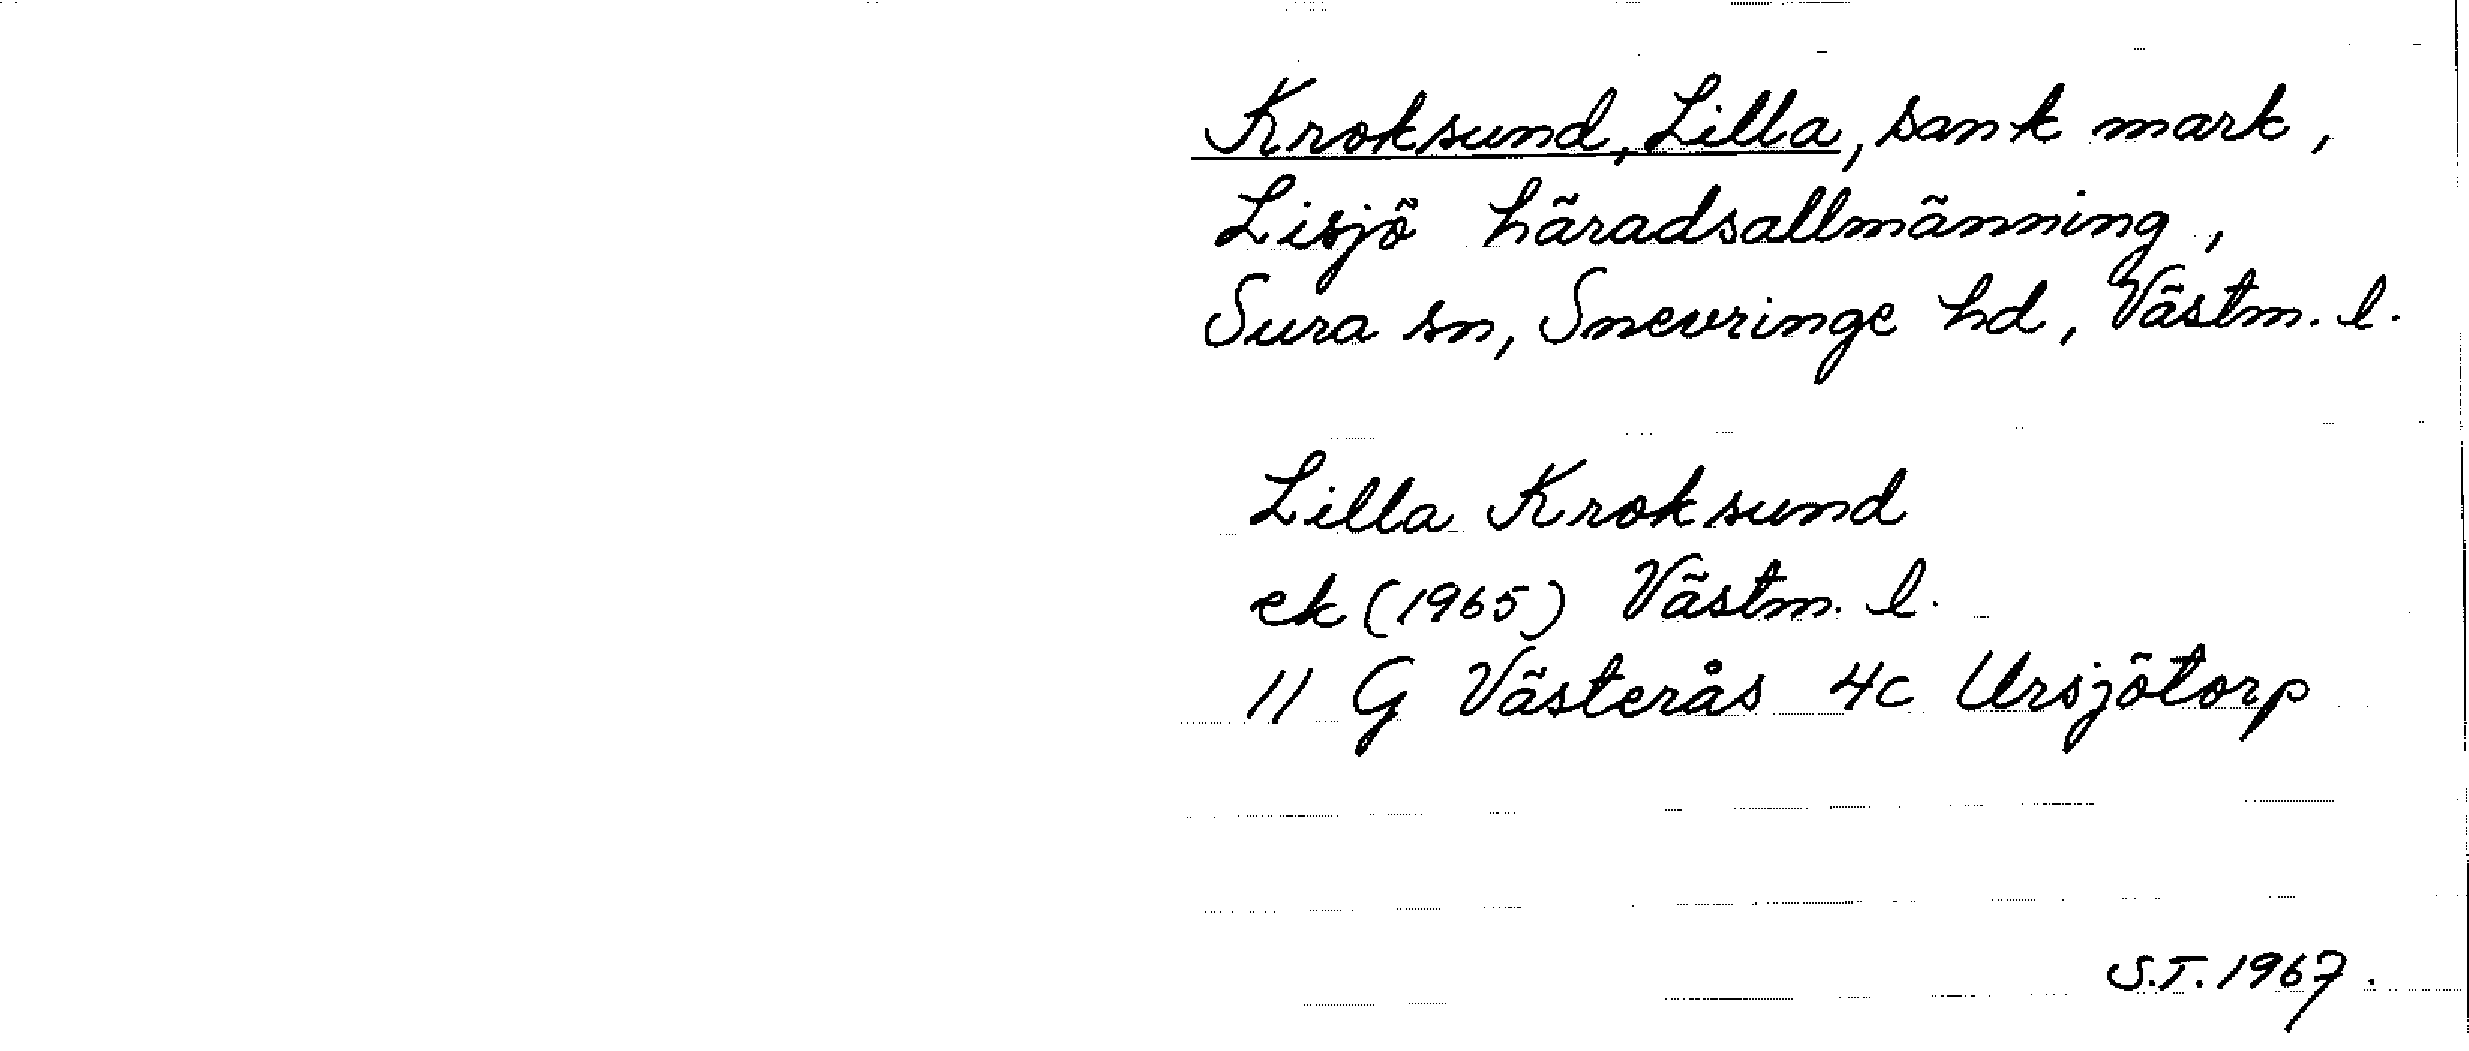 Kroksund, Lilla, sank mark,
Lisjö häradsallmänning,
Sura sn, Snevringe hd, Västm. l.
Lilla Kroksund
ek (1965) Västm. l.
11 G Västerås 4c Ursjötorp
S.T. 1967.